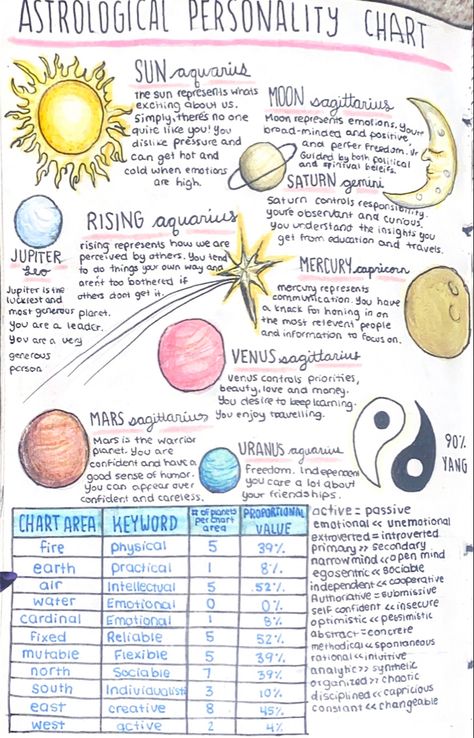 ASTROLOGICAL PERSONALITY CHART
SUN aquarius
the sun represents whats
exciting about us.
Simply, there's no one
quite like you! You
dislike pressure and
can get hot and
cold when emotions
are high.
MOON sagittarius
Moon represents emotions. Your
broad-minded and positive,
and perfer freedom. Ur
Guided by both political
and spiritual beliefs.
SATURN gemini
Saturn controls responsibility.
you're observant and curious.
You understand the insights you
get from education and travels.
RISING aquarius
rising represents how we are
perceived by others. You tend
to do things your own way and
aren't too bothered if
others don't get it.
JUPITER
leo
Jupiter is the
luckiest and
most generous planet.
You are a leader.
You are a very
generous
person
MERCURY capricorn
mercury represents
communication. You have
a knack for honing in on
the most relevent people
and information to focus on.
VENUS sagittarius
venus controls priorities,
beauty, love and money.
You desire to keep learning.
You enjoy travelling.
MARS sagittarius
Mars is the warrior
planet. You are
confident and have a
good sense of humor.
You can appear over
confident and careless.
URANUS aquarius
Freedom. Independence
you care a lot about
your friendships.
90%
YANG
CHART AREA KEYWORD # of planets per chart area PROPORTIONAL VALUE
fire physical 5 39%
earth practical 1 8%
air Intellectual 5 52%
water Emotional 0 0%
cardinal Emotional 1 8%
fixed Reliable 5 52%
mutable Flexible 5 39%
north Sociable 7 39%
south Individualist 3 10%
east creative 8 45%
west active 2 4%
active = passive
emotional << unemotional
extroverted = introverted
primary >> secondary
narrow mind << open mind
egosentric << sociable
independent << cooperative
Authorative = submissive
self confident << insecure
optimistic << pessimistic
abstract = concrete
methodical << spontaneous
rational << intuitive
analytic >> synthetic
organized >> chaotic
disciplined << capricious
constant << changeable